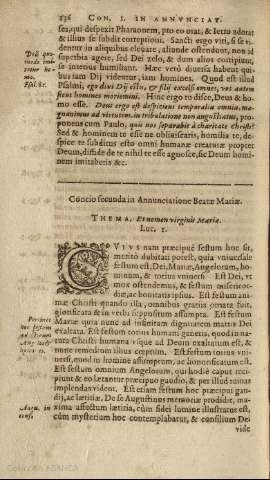 236 CON. I. IN ANNVNCIAT.
sea, qui despexit Pharaonem, pro eo orat, & letro adorat
& illius se subdit correptioni. Sancti ergo viri, si se vi-
dentur in aliquibus eleuare, aliunde ostendunt, non id
superbia agere, sed Dei zelo, & dum alios corripiunt,
se interius humiliant. Hæc verò diuersa habent qui-
bus iam Dij videntur, iam homines. Quod est illud
Psalmi, ego dixi Dij estis, & filij excelsi omnes, vos autem
sicut homines moriemini. Hinc ergo to disce, Deus & ho-
mo esse. Deus ergo est despiciens temporalia omnia, ma-
gnanimus ad virtutem, in tribulatione non angustiatus, pro-
ponens cum Paulo, quis nos separabit à charitate Christi?
Sed & hominem te esse ne obliuiscaris, humilia te, de-
spice te subditus esto omni humanæ creaturæ propter
Deum, diffide de te nihil te esse agnosce, sic Deum homi-
nem imitaberis &c.
Dij quo-
modo
ho-
mo.
Psal. 81.
Concio secunda in Annunciatione Beatæ Mariæ.
THEMA. Et nomen virginis Maria.
Luc. 1.
CVIVS nam præcipuè festum hoc sit,
meritò dubitari potest, quia vniuersale
festum est, Dei, Mariæ, Angelorum, ho-
minum, & totius vniuersi. Est Dei, vt
mox ostendemus, & festum misericor-
diæ, ac bonitatis ipsius. Est festum ani-
mæ Christi quando illa, omnibus gratiis ornata fuit,
glorificata & in verbi suppositum assumpta. Est festum
Mariæ quia nunc ad infinitam dignitatem matris Dei
exaltata. Est festum totius humani generis, quod in na-
tura Christi humana vsque ad Deum exaltatum est, &
nunc remedium illius cœpit. Est festum totius vni-
uersi, quod in homine assumptum, ac honorificatum est.
Est festum omnium Angelorum, qui hodiè caput reci-
piunt & eo lætantur præcipuo gaudio, & per illud ruinas
implendas vident. Est etiam festum hoc præcipui gau-
dij, ac lætitiæ. De se Augustinus memoriæ prodidit, ma-
xima affectum lætitia, cùm fidei lumine illustratus est,
cùm mysterium hoc contemplabatur, & consilium Dei
hoc festum
ad
Aug. in
conf.
vide